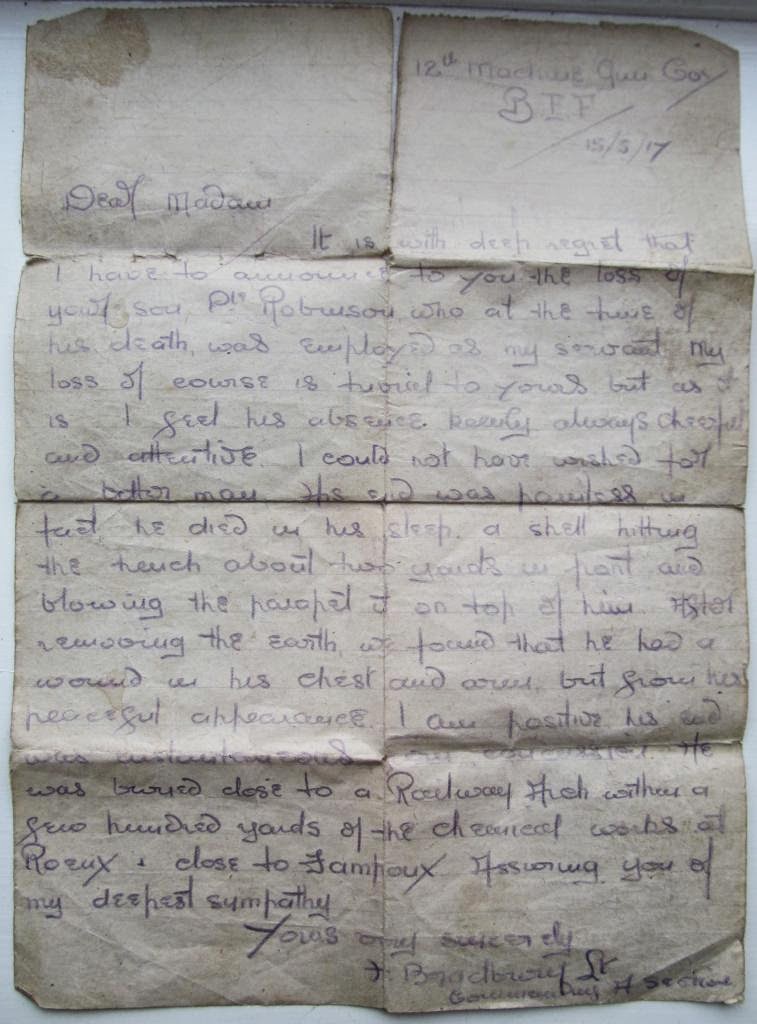 12th Machine Gun Coy
B E F
15/5/17
Dear Madam
It is with deep regret that
I have to announce to you the loss of
your son, Pte Robinson, who at the time of
his death, was employed as my servant. My
loss of course is trivial to yours but as it
is I feel his absence keenly always cheerful
and attentive. I could not have wished for
a better man. His end was painless in
fact he died in his sleep. a shell hitting
the trench about two yards in front and
blowing the parapet it on top of him. After
removing the earth, we found that he had a
wound in his chest and arm, but from his
peaceful appearance. I am positive his end
was instantaneous concussion. He
was buried close to a Railway Arch within a
few hundred yards of the chemical works at
Roeux & close to Fampoux Assuring you of
my deepest sympathy
Yours very sincerely
F. Bradbury Lt
Commanding A section